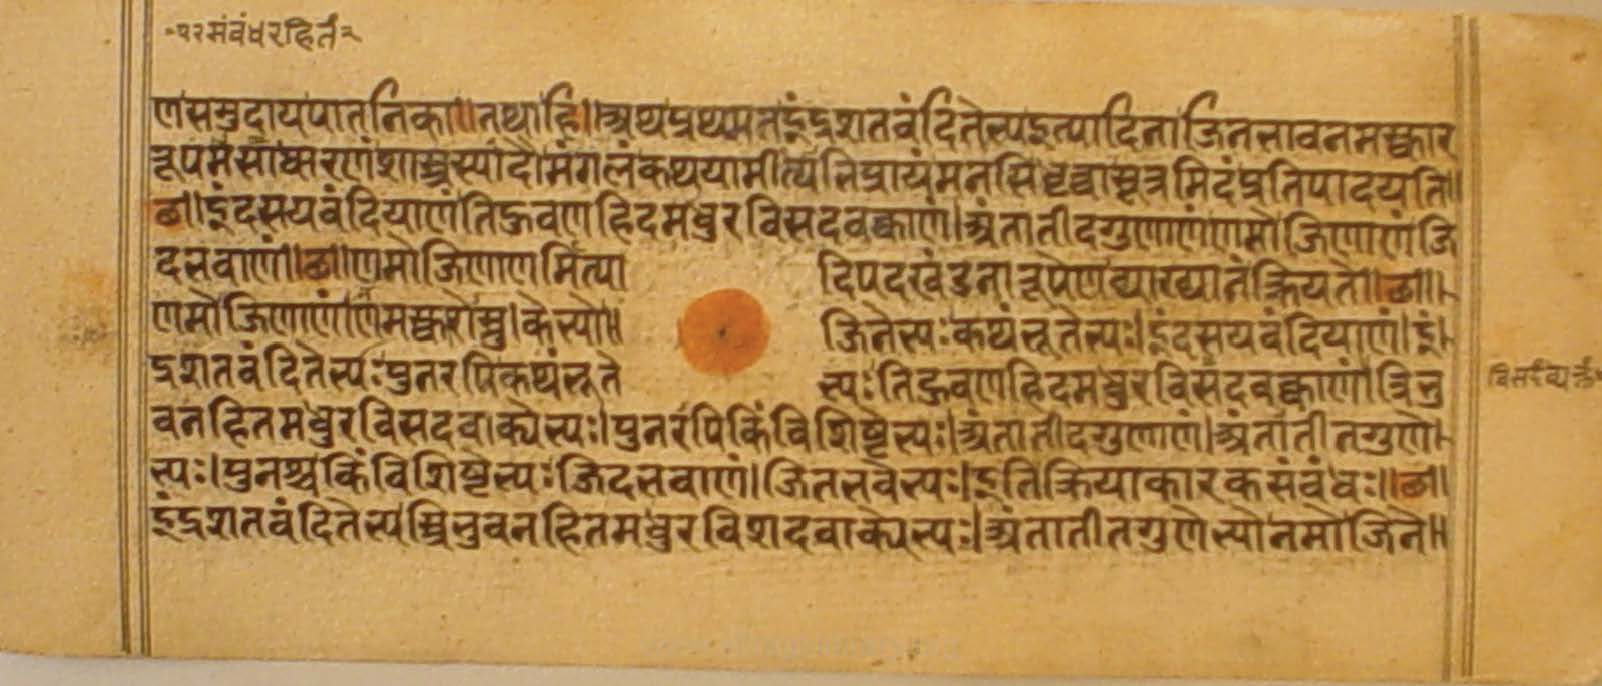 १२ संबंधरहितं २
णसमुदायपातनिका॥तथाहि॥अथप्रथमतइंद्रशतवंदितेभ्यइत्यादिनाजिनभावनमस्कार
रूपमसाधारणंशास्त्रस्यादौमंगलंकथयामीत्यभिप्रायंमनसिधृत्वासूत्रमिदंप्रतिपादयति॥
छ॥इंदसयवंदियाणंतिहुवणहिदमधुरविसदवक्काणं।अंतातीदगुणाणंणमोजिणाणंजि
दभवाणं॥छ॥णमोजिणाणमित्या दिपदखंडनारूपेणव्याख्यानंक्रियते॥छ॥
णमोजिणाणंनमस्कारोस्तु।केभ्यो॥ जिनेभ्यःकथंभूतेभ्यः।इंदसयवंदियाणं।इं
द्रशतवंदितेभ्यःपुनरपिकथंभूते भ्यःतिहुवणहिदमधुरविसदवक्काणं।त्रिभु
वनहितमधुरविसदवाक्येभ्यः।पुनरपिकिंविशिष्टेभ्यः।अंतातीदगुणाणं।अंतातीतगुणे
भ्यः।पुनश्चकिंविशिष्टेभ्यःजिदभवाणं।जितभवेभ्यः।इतिक्रियाकारकसंबंधः॥छ॥
इंद्रशतवंदितेभ्यस्त्रिभुवनहितमधुरविशदवाक्येभ्यः।अंतातीतगुणेभ्योनमोजिने॥